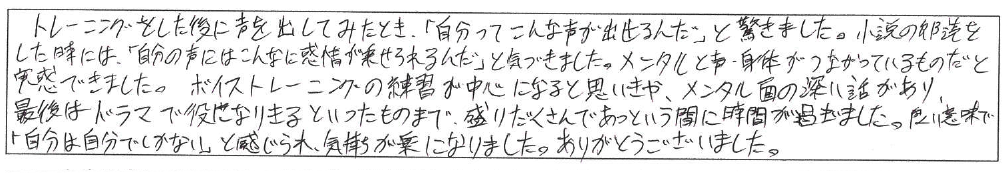 トレーニングをした後に声を出してみたとき、「自分ってこんな声が出せるんだ」と驚きました。小説の朗読を
した時には、「自分の声にはこんなに感情が乗せられるんだ」と気づきました。メンタルと声・身体がつながっているものだと
実感できました。 ボイストレーニングの練習が中心になると思いきや、メンタル面の深い話があり、
最後はドラマで役になりきるといったものまで、盛りだくさんであっという間に時間が過ぎました。良い意味で
「自分は自分でしかない」と感じられ、気持ちが楽になりました。ありがとうございました。